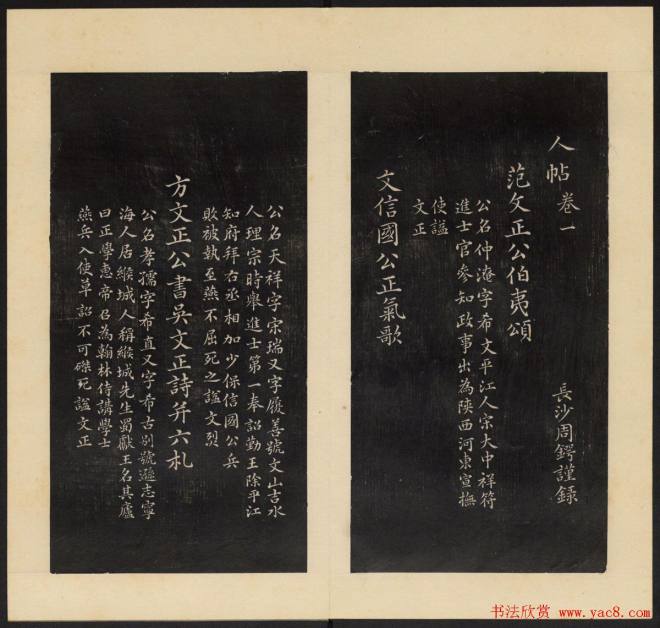 人帖卷一
長沙周鍔謹録
范文正公伯夷頌
公名仲淹字希文平江人宗大中祥符
進士官參知政事出為陝西河東宣撫
使謚
文正
文信國公正氣歌
公名天祥字宋瑞又字履善號文山吉水
人理宗時舉進士第一奉詔勤王除平江
知府拜右丞相加少保信國公兵
敗被執至燕不屈死之謚文烈
方文正公書吳文正詩并六札
公名孝孺字希直又字希古別號遜志寧
海人居緱城人稱緱城先生蜀獻王名其廬
曰正學惠帝召為翰林侍講學士
燕兵入使草詔不可磔死謚文正
书法欣赏 www.yac8.com